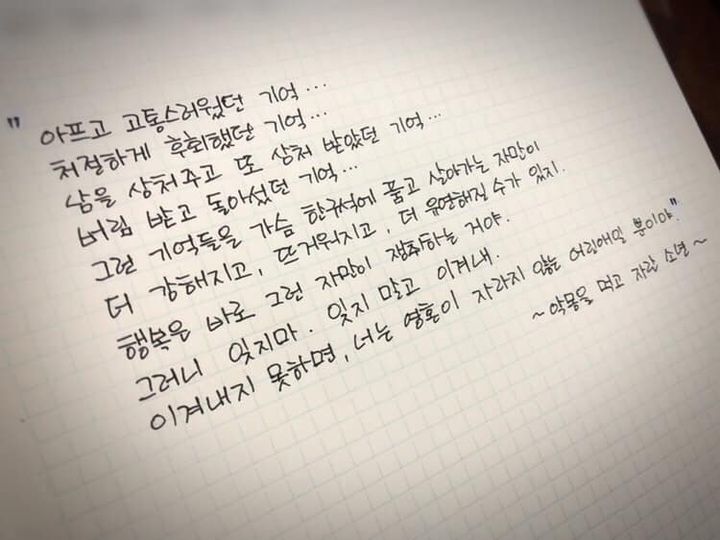 " 아프고 고통스러웠던 기억...
처절하게 후회했던 기억...
남을 상처주고 또 상처 받았던 기억...
버림 받고 돌아섰던 기억...
그런 기억들을 가슴 한구석에 품고 살아가는 자만이
더 강해지고, 뜨거워지고, 더 유연해질 수가 있지.
행복은 바로 그런 자만이 쟁취하는 거야.
그러니 잊지마. 잊지 말고 이겨내.
이겨내지 못하면, 너는 영혼이 자라지 않는 어린애일 뿐이야."
~ 악몽을 먹고 자란 소년 ~